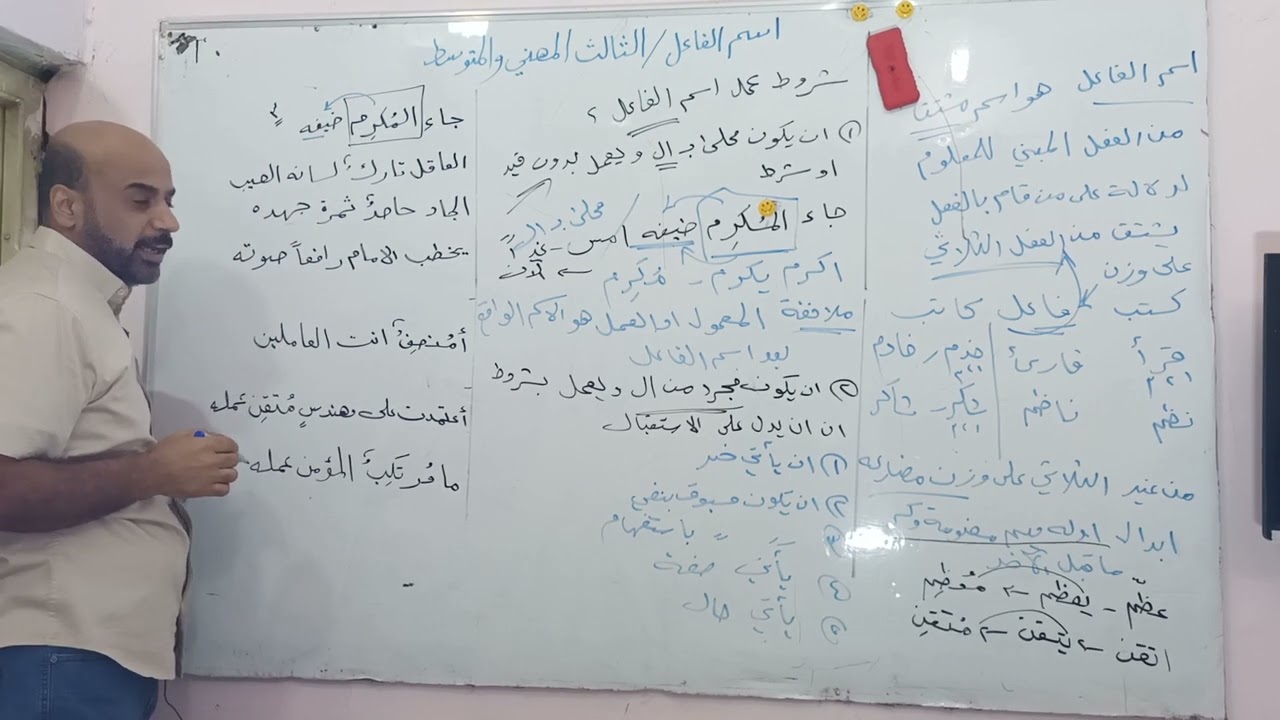 اسم الفاعل / الثالث المهني والمتوسط
اسم الفاعل هو اسم مشتق
من الفعل المبني للمعلوم
لدلالة على من قام بالفعل
يشتق من الفعل الثلاثي
على وزن
كتب فاعل كاتب
قرأ قارئ خدم / خادم
نظم ناظم شكر - شاكر
من غير الثلاثي على وزن مضارعه
ابدال اوله ميم مضمومة وكسر
ما قبل
عظّم - يعظم ← مُعظِم
اتقن ← يتقن ← مُتقِن
شروط عمل اسم الفاعل ؟
١) ان يكون محلى بـ ال ويعمل بدون قيد
او شرط
جاء المُكرِم ضيفه امس - غدٍ
محلى بـ ال
← الان
اكرم يكرم - مُكرِم
ملاحظة المعمول او العمل هو الاسم الواقع
بعد اسم الفاعل
٢) ان يكون مجرد من ال ويعمل بشروط
ان يدل على الاستقبال
١) ان يأتي خبر
٢) ان يكون مسبوق بنفي
٣) " " باستفهام
٤) يأتي صفة
٥) يأتي حال
جاء المُكرِم ضيفه
العاقل تارك لسانه العيب
الجاد حاصد ثمرة جهده
يخطب الامام رافعاً صوته
أمُنصِفٌ انت العاملين
أعتمدت على مهندسٍ مُتقِن عمله
ما مُرتَكِبٌ المؤمن عمله